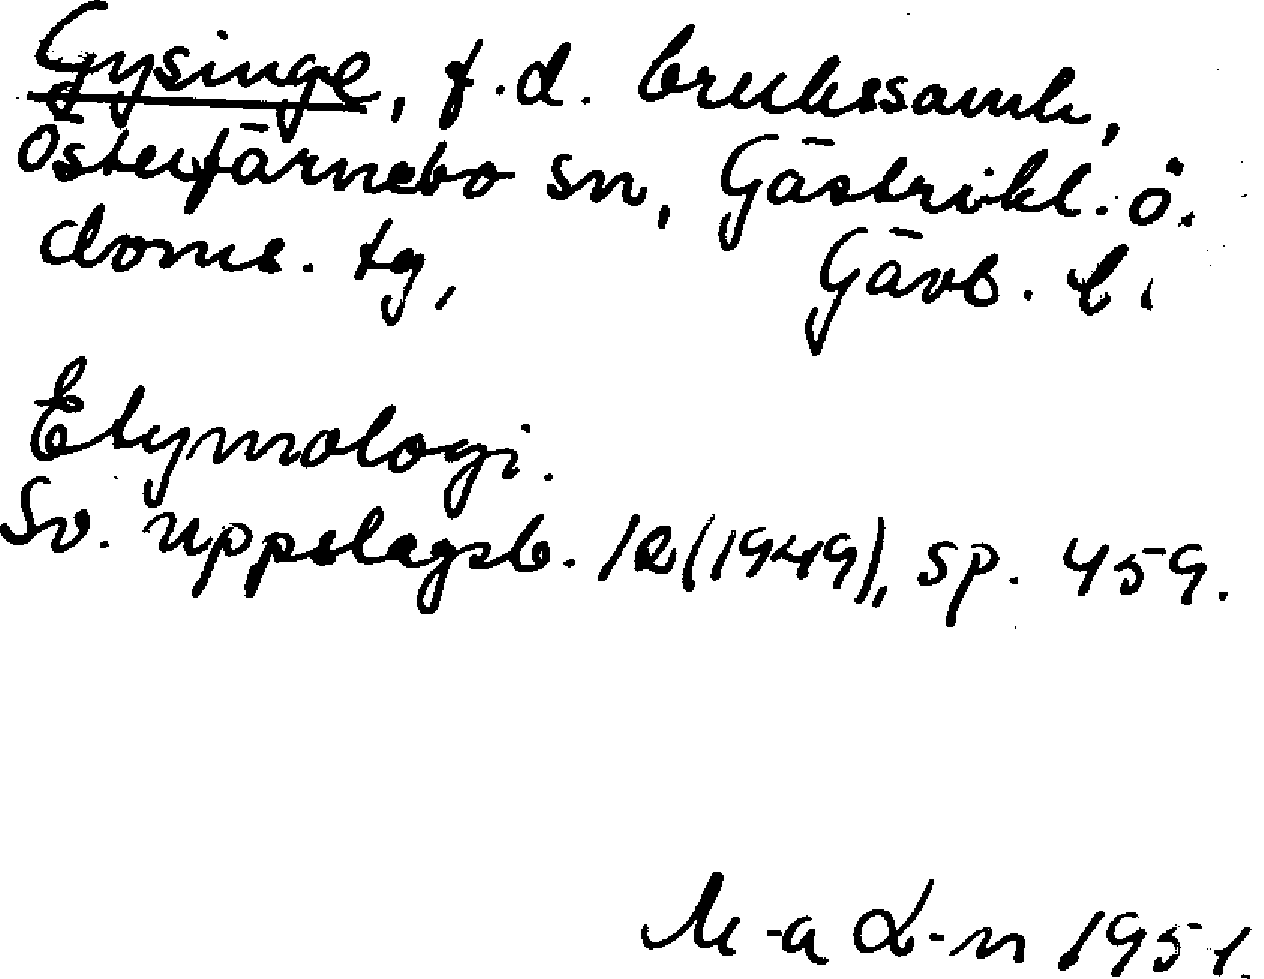 Gysinge, f.d. brukssamh,
Österfärnebo sn, Gästrikl. ö.
doms. tg, Gävb. l.
Etymologi.
Sv. uppslagsb. 12 (1949), sp. 459.
M-a L-m 1951.